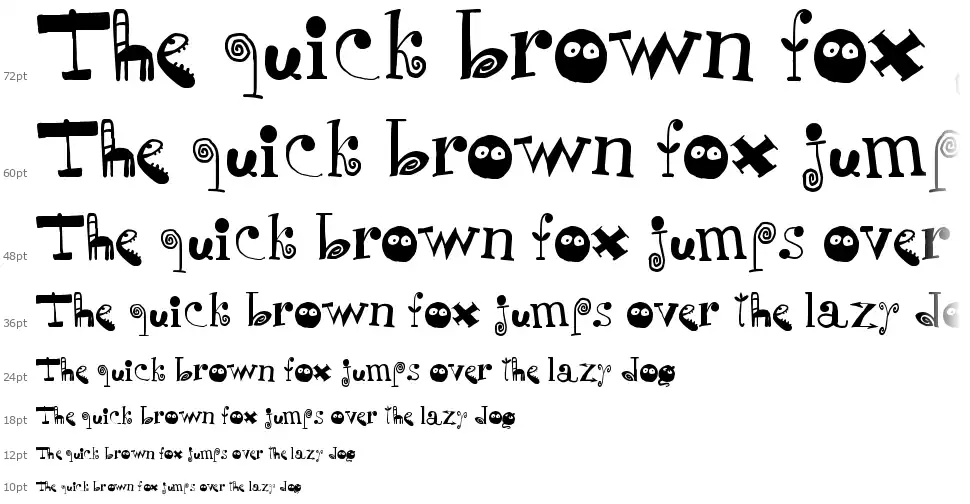 72pt The quick brown fox
60pt The quick brown fox jump
48pt The quick brown fox jumps over
36pt The quick brown fox jumps over the lazy do
24pt The quick brown fox jumps over the lazy dog
18pt The quick brown fox jumps over the lazy dog
12pt The quick brown fox jumps over the lazy dog
10pt The quick brown fox jumps over the lazy dog